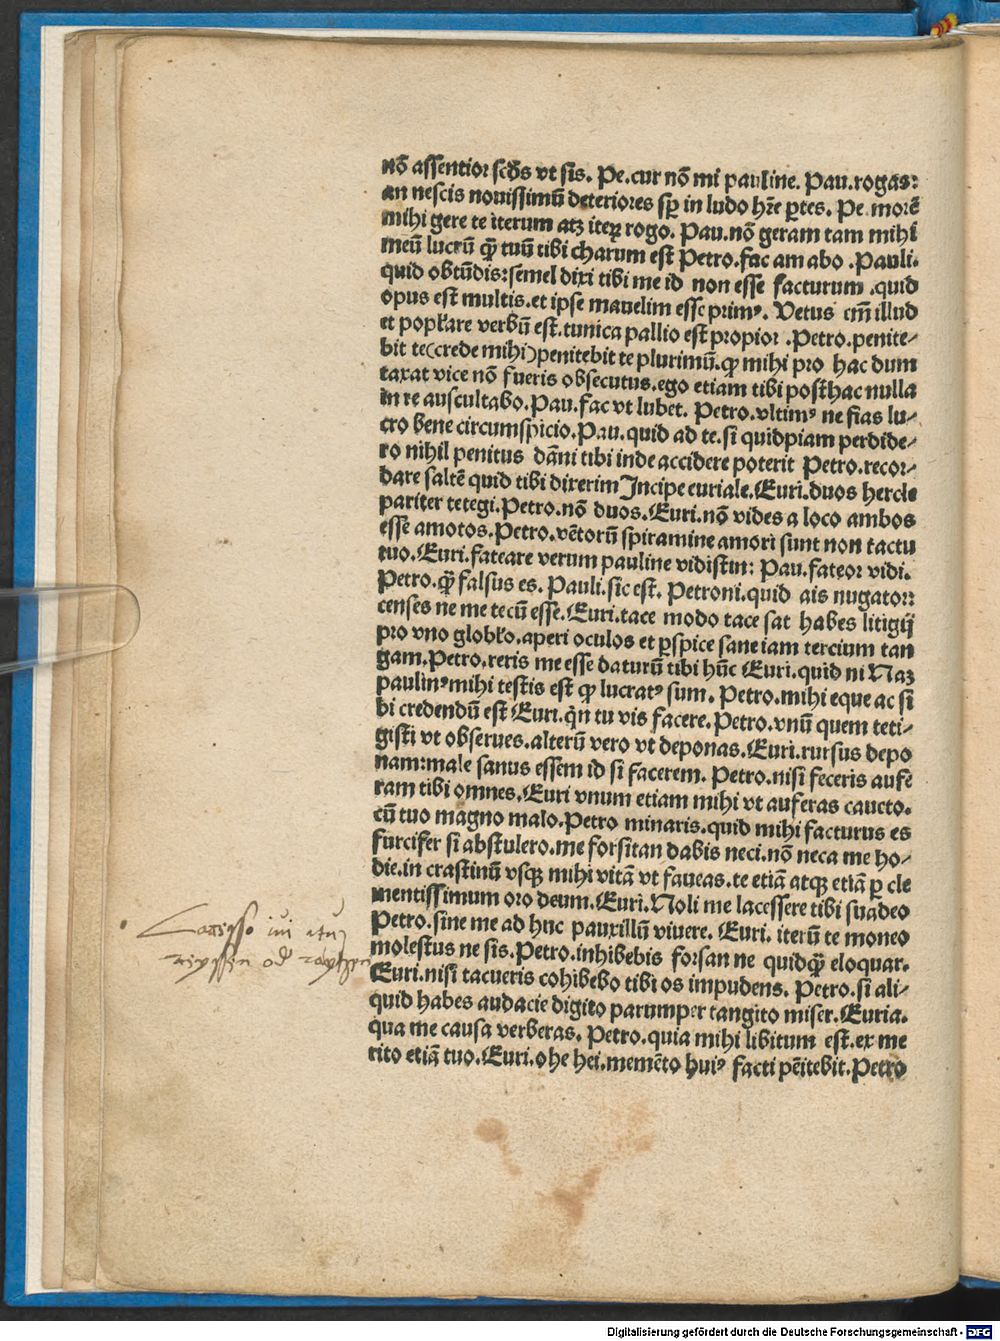 nō assentior scd̄s vt sis. Pe.cur nō mi pauline. Pau.rogas:
an nescis nouissimū deteriores sp̄ in ludo hr̄e ꝑtes. Pe. morē
mihi gere te iterum atꝫ iteꝝ rogo. Pau.nō geram tam mihi
meū lucrū ꝙ̄ tuū tibi charum est Petro.fac am abo .Pauli.
quid obtūdis:semel dixi tibi me id non esse facturum .quid
opus est multis.et ipse mauelim esse primꝰ. Vetus em̄ illud
et popłare verbū est.tunica pallio est propior .Petro.penite-
bit te(crede mihi)penitebit te plurimū.ꝙ mihi pro hac dum
taxat vice nō fueris obsecutus.ego etiam tibi posthac nulla
in re auscultabo.Pau.fac vt lubet. Petro.vltimꝰ ne fias lu-
cro bene circumspicio.Pau.quid ad te.si quidpiam perdide-
ro nihil penitus dāni tibi inde accidere poterit Petro.recor-
dare saltē quid tibi dixerim Incipe euriale.Euri.duos hercle
pariter tetegi.Petro.nō duos.Euri.nō vides a loco ambos
esse amotos.Petro.vētorū spiramine amori sunt non tactu
tuo.Euri.fateare verum pauline vidistin: Pau.fateor vidi.
Petro.ꝙ̄ falsus es. Pauli.sic est. Petroni.quid ais nugator:
censes ne me tecū esse.Euri.tace modo tace sat habes litigij
pro vno globło.aperi oculos et ꝑspice sane iam tercium tan
gam.Petro.reris me esse daturū tibi hūc Euri.quid ni Naꝫ
paulinꝰ mihi testis est ꝙ lucratꝰ sum. Petro.mihi eque ac si
bi credendū est Euri.qͥn tu vis facere.Petro.vnū quem teti-
gisti vt obserues.alterū vero vt deponas.Euri.rursus depo
nam:male sanus essem id si facerem. Petro.nisi feceris aufe
ram tibi omnes.Euri vnum etiam mihi vt auferas caucto.
cū tuo magno malo.Petro minaris.quid mihi facturus es
furcifer si abstulero.me forsitan dabis neci.nō neca me ho-
die.in crastinū vsqꝫ mihi vitā vt faueas.te etiā atqꝫ etiā ꝑ cle
mentissimum oro deum.Euri.Noli me lacessere tibi suadeo
Petro.sine me ad huc pauxillū viuere. Euri. iterū te moneo
molestus ne sis.Petro.inhibebis forsan ne quidꝙ̄ eloquar.
Euri.nisi tacueris cohibebo tibi os impudens. Petro.si ali-
quid habes audacie digito parumper tangito miser.Euria.
qua me causa verberas. Petro.quia mihi libitum est.ex me
rito etiā tuo.Euri.ohe hei.memēto huiꝰ facti pēitebit.Petro
Digitalisierung gefördert durch die Deutsche Forschungsgemeinschaft - DFG